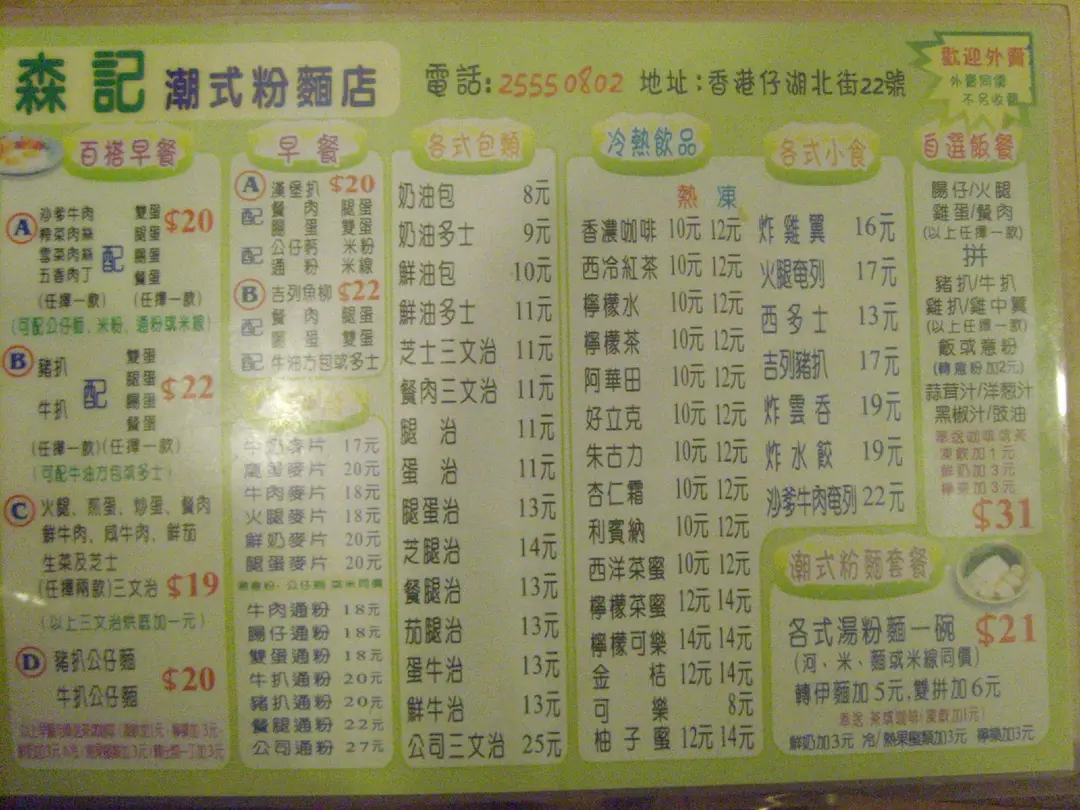 森記 潮式粉麵店
電話:25550802 地址:香港仔湖北街22號
歡迎外賣
外賣同價
不另收費
百搭早餐
A 沙爹牛肉 雙蛋 $20
榨菜肉絲 腿蛋
雪菜肉絲 配 腸蛋
五香肉丁 餐蛋
(任擇一款) (任擇一款)
(可配公仔麵、米粉、通粉或米線)
B 豬扒 雙蛋
配 腿蛋 $22
牛扒 腸蛋
餐蛋
(任擇一款)(任擇一款)
(可配牛油方包或多士)
C 火腿、煎蛋、炒蛋、餐肉
鮮牛肉、咸牛肉、鮮茄
生菜及芝士
(任擇兩款)三文治 $19
(以上三文治烘底加一元)
D 豬扒公仔麵
牛扒公仔麵 $20
早餐
A 漢堡扒 $20
配 餐肉 腿蛋
腸蛋 雙蛋
配 公仔麪 米粉
通粉 米線
B 吉列魚柳 $22
配 餐肉 腿蛋
腸蛋 雙蛋
配 牛油方包或多士
牛奶麥片 17元
牛肉麥片 18元
火腿麥片 18元
鮮奶麥片 20元
腿蛋麥片 20元
牛肉通粉 18元
腸仔通粉 18元
雙蛋通粉 18元
牛扒通粉 20元
豬扒通粉 20元
餐腿通粉 22元
公司通粉 27元
各式包類
奶油包 8元
奶油多士 9元
鮮油包 10元
鮮油多士 11元
芝士三文治 11元
餐肉三文治 11元
腿治 11元
蛋治 11元
腿蛋治 13元
芝腿治 14元
餐腿治 13元
茄腿治 13元
蛋牛治 13元
鮮牛治 13元
公司三文治 25元
冷熱飲品
熱 凍
香濃咖啡 10元 12元
西冷紅茶 10元 12元
檸檬水 10元 12元
檸檬茶 10元 12元
阿華田 10元 12元
好立克 10元 12元
朱古力 10元 12元
杏仁霜 10元 12元
利賓納 10元 12元
西洋菜蜜 10元 12元
檸檬菜蜜 12元 14元
檸檬可樂 14元 14元
金桔 12元 14元
可樂 8元
柚子蜜 12元 14元
各式小食
炸雞翼 16元
火腿奄列 17元
西多士 13元
吉列豬扒 17元
炸雲吞 19元
炸水餃 19元
沙爹牛肉奄列 22元
自選飯餐
腸仔/火腿
雞蛋/餐肉
(以上任擇一款)
拼
豬扒/牛扒
雞扒/雞中翼
(以上任擇一款)
飯或意粉
(轉意粉加2元)
蒜茸汁/洋葱汁
黑椒汁/豉油
凍飲加1元
鮮奶加3元
檸樂加3元
$31
潮式粉麵套餐
各式湯粉麵一碗 $21
(河、米、麵或米線同價)
轉伊麵加5元,雙拼加6元
鮮奶加3元 冷/熱果蜜類加3元 檸樂加3元